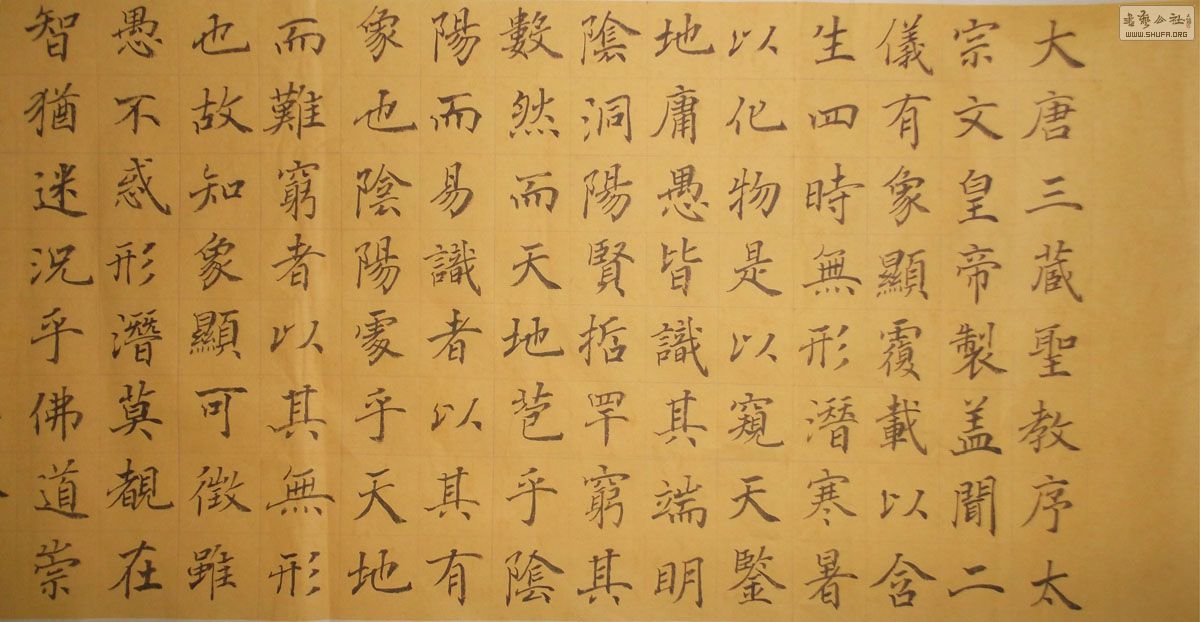 大唐三蔵聖教序太
宗文皇帝製盖聞二
儀有象顯覆載以含
生四時無形潛寒暑
以化物是以窺天鑒
地庸愚皆識其端明
陰洞陽賢哲罕窮其
數然而天地苞乎陰
陽而易識者以其有
象也陰陽處乎天地
而難窮者以其無形
也故知象顯可徵雖
愚不惑形潛莫覩在
智猶迷況乎佛道崇
書藝公社
WWW.SHUFA.ORG